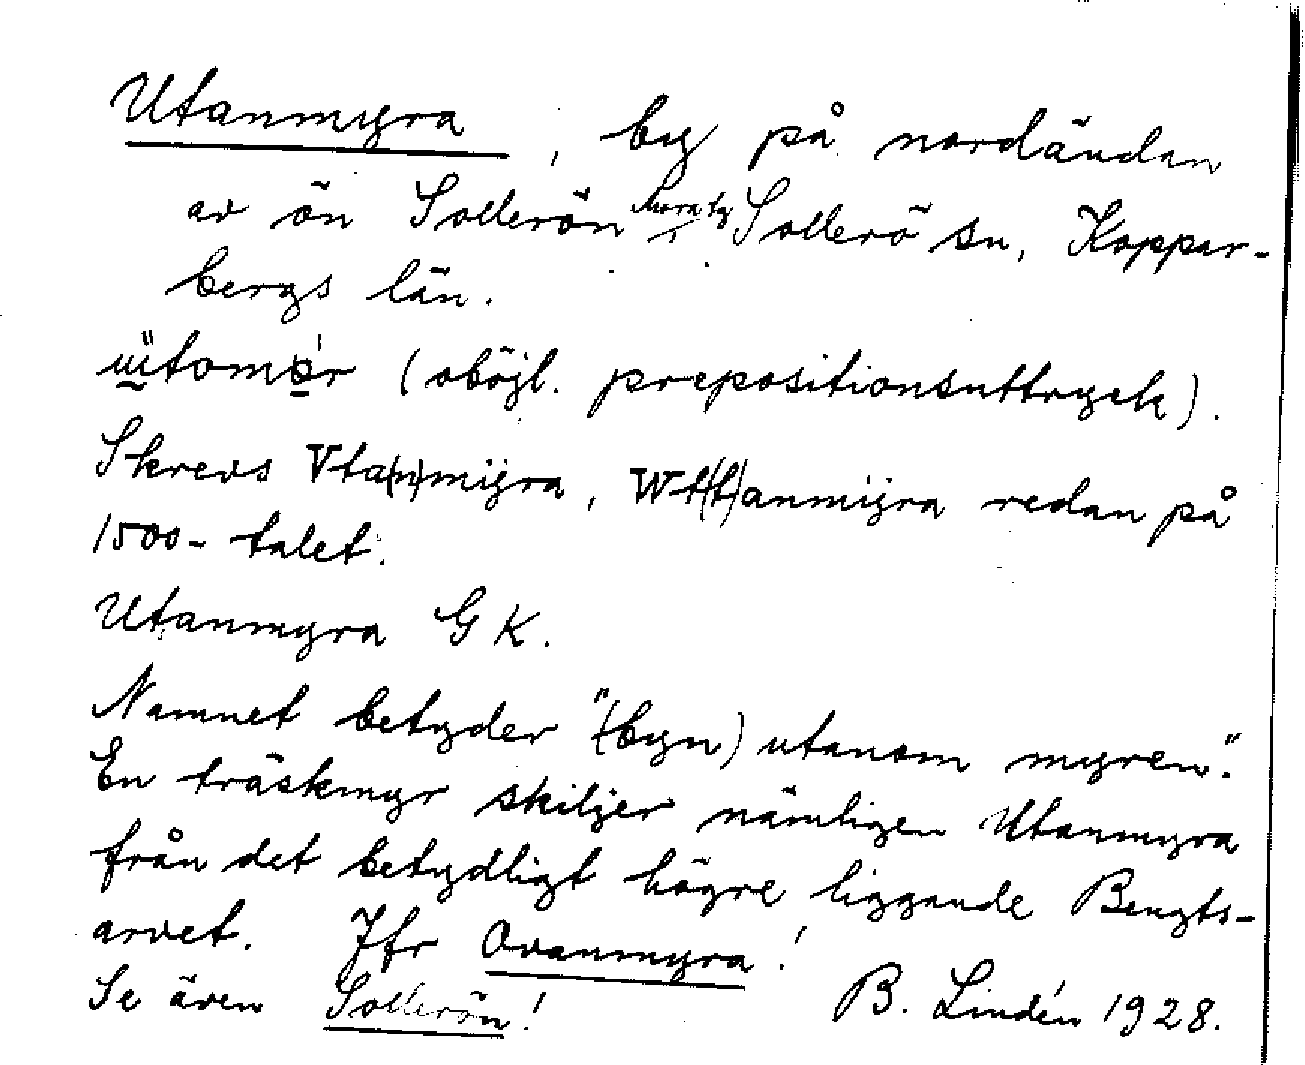 Utanmyra, by på nordändan
av ön Sollerön, Mora tg Sollerö sn, Koppar-
bergs län.
ụ̈tomǿr (oböjl. prepositionsuttryck).
Skrevs Vta(n)mijra, Wt(t)anmijra redan på
1500-talet.
Utanmyra GK.
Namnet betyder "(byn) utanom myren".
En träskmyr skiljer nämligen Utanmyra
från det betydligt högre liggande Bengts-
arvet. Jfr Ovanmyra!
Se även Sollerön! B. Lindén 1928.